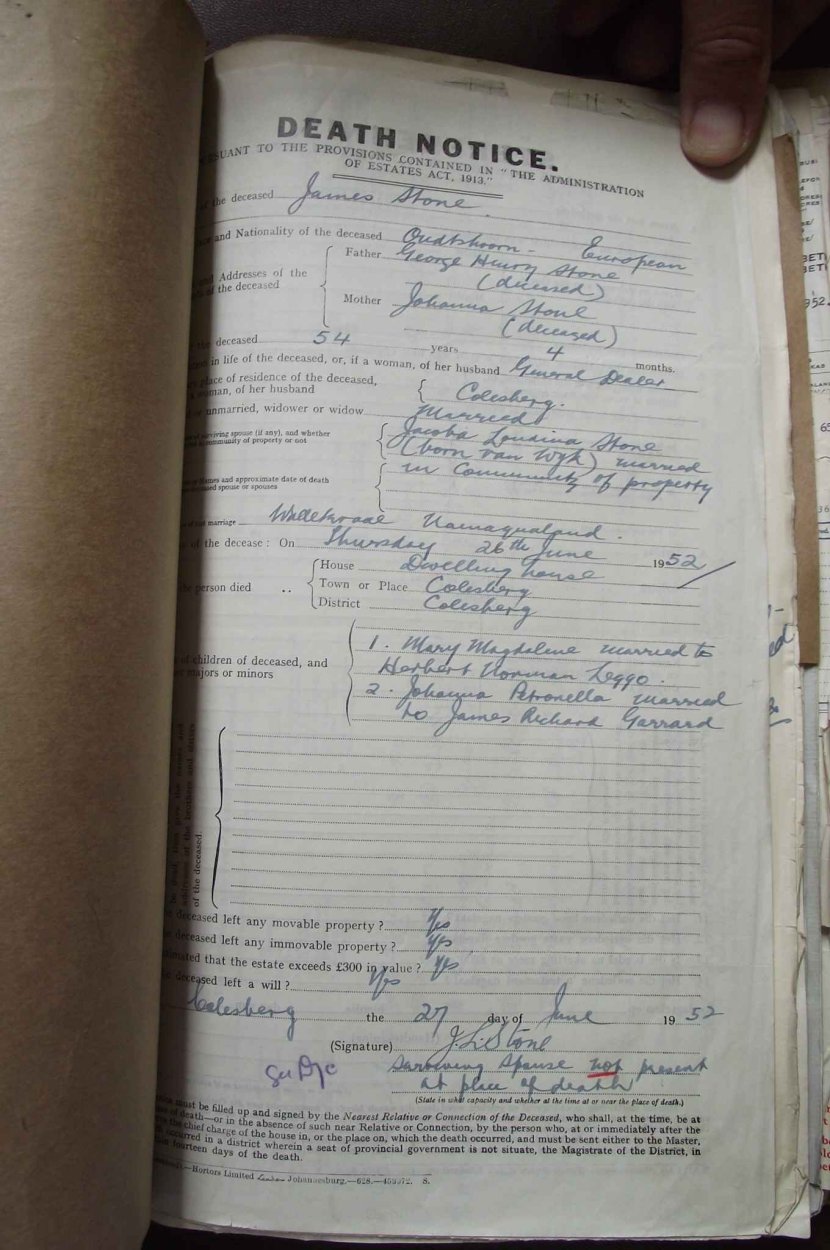 DEATH NOTICE.
SUANT TO THE PROVISIONS CONTAINED IN "THE ADMINISTRATION
OF ESTATES ACT, 1913."
of the deceased James Stone
and Nationality of the deceased Oudtshoorn - European
Father George Henry Stone
(deceased)
and Addresses of the
of the deceased
Mother Johanna Stone
(deceased)
the deceased 54 years 4 months.
in life of the deceased, or, if a woman, of her husband General Dealer
place of residence of the deceased,
woman, of her husband Colesberg.
unmarried, widower or widow Married
surviving spouse (if any), and whether
community of property or not
Jacoba Stone
(born van Wyk) married
in Community of property
Names and approximate date of death
spouse or spouses
marriage Namaqualand.
of the decease: On Thursday 26th June 1952
House Dwelling house
the person died .. Town or Place Colesberg
District Colesberg
of children of deceased, and
majors or minors
1. Mary Magdalene married to
Herbert Norman Leggo.
2. Johanna Petronella married
to James Richard Garrard
be dead, then give the names and
addresses of the brothers and sisters
of the deceased
deceased left any movable property ? Yes
deceased left any immovable property ? Yes
that the estate exceeds £300 in value ? Yes
deceased left a will ? Yes
Colesberg the 27 day of June 1952
(Signature) J.L. Stone
Surviving Spouse not present
at place of death
(State in what capacity and whether at the time at or near the place of death.)
must be filled up and signed by the Nearest Relative or Connection of the Deceased, who shall, at the time, be at
of death—or in the absence of such near Relative or Connection, by the person who, at or immediately after the
the chief charge of the house in, or the place on, which the death occurred, and must be sent either to the Master,
occurred in a district wherein a seat of provincial government is not situate, the Magistrate of the District, in
fourteen days of the death.
Hortors Limited Johannesburg.—628.—459972. S.